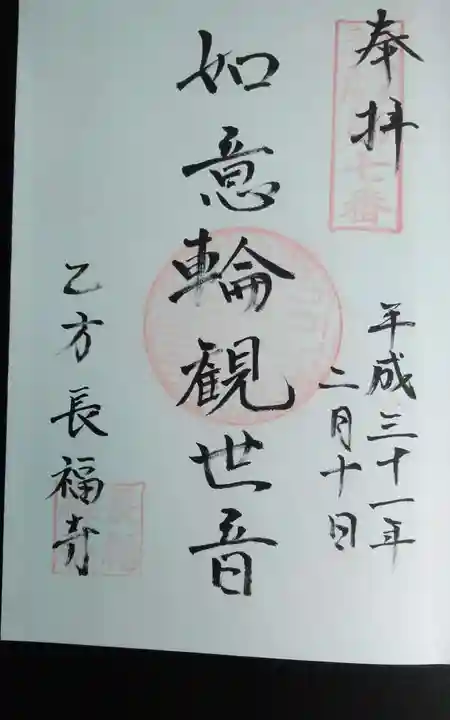 奉拝
七番
平成三十一年
二月十日
如意輪観世音
乙方長福寺